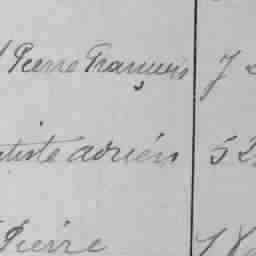 Pierre François 7
tiste adrien 52
Pierre 18